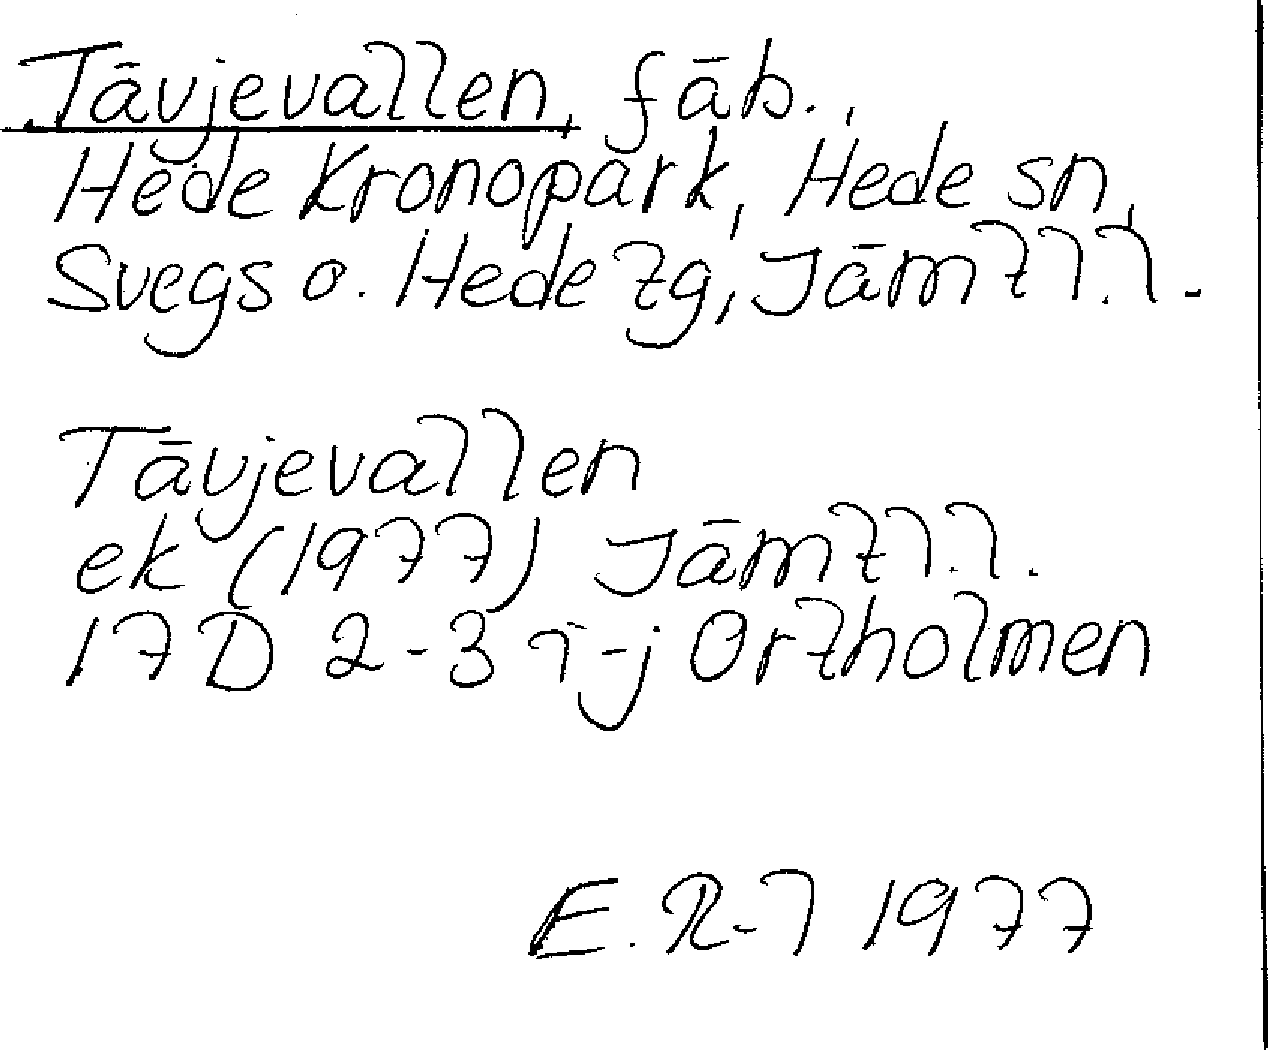 Tāvjevallen, fāb.,
Hede Kronopark, Hede sn,
Svegs o. Hede tg, Jāmtl.l.
Tāvjevallen
ek (1977) Jāmtl.l.
17D 2-3 i-j Ortholmen
E. R-l 1977